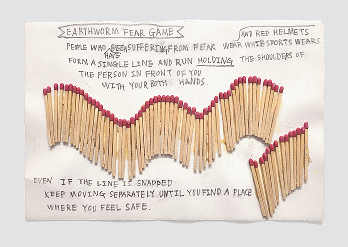 EARTHWORM FEAR GAME
AND RED HELMETS
PEOPLE WHO HAVE SUFFERING FROM FEAR WEAR WHITE SPORTS WEARS
FORM A SINGLE LINE AND RUN HOLDING THE SHOULDERS OF
THE PERSON IN FRONT OF YOU
WITH YOUR BOTH HANDS
EVEN IF THE LINE IS SNAPPED
KEEP MOVING SEPARATELY UNTIL YOU FIND A PLACE
WHERE YOU FEEL SAFE.